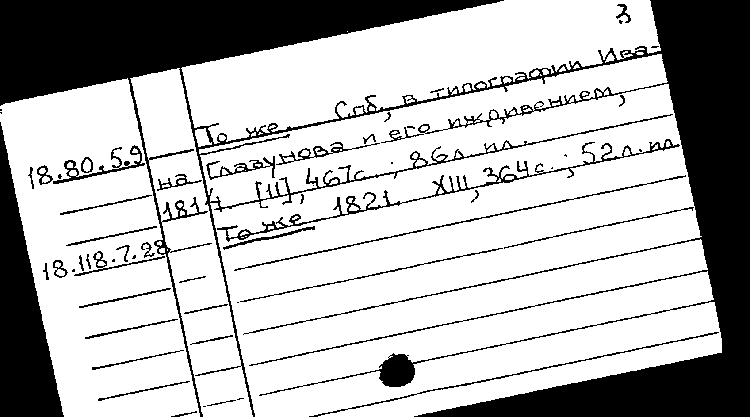 3
То же. Спб., в типографии Ива-
18.80.5.9 на Глазунова и его иждивением,
1814. [II], 467с.; 86л. пл.
18.118.7.28 То же 1821. XIII, 364с.; 52л. пл.